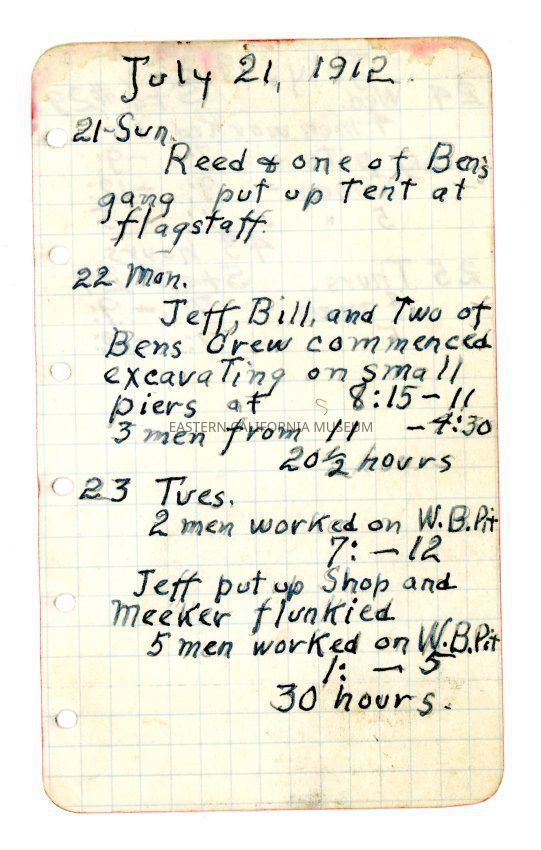 July 21, 1912.
21-Sun.
Reed & one of Bens
gang put up Tent at
flagstaff.
22 Mon.
Jeff, Bill, and Two of
Bens Crew commenced
excavating on small
piers at 8:15-11
3 men from 11 -4:30
EASTERN CALIFORNIA MUSEUM
20½ hours
23 Tues.
2 men worked on W.B.Pit
7: - 12
Jeff put up Shop and
Meeker flunkied
5 men worked on W.B.Pit
1: - 5
30 hours.